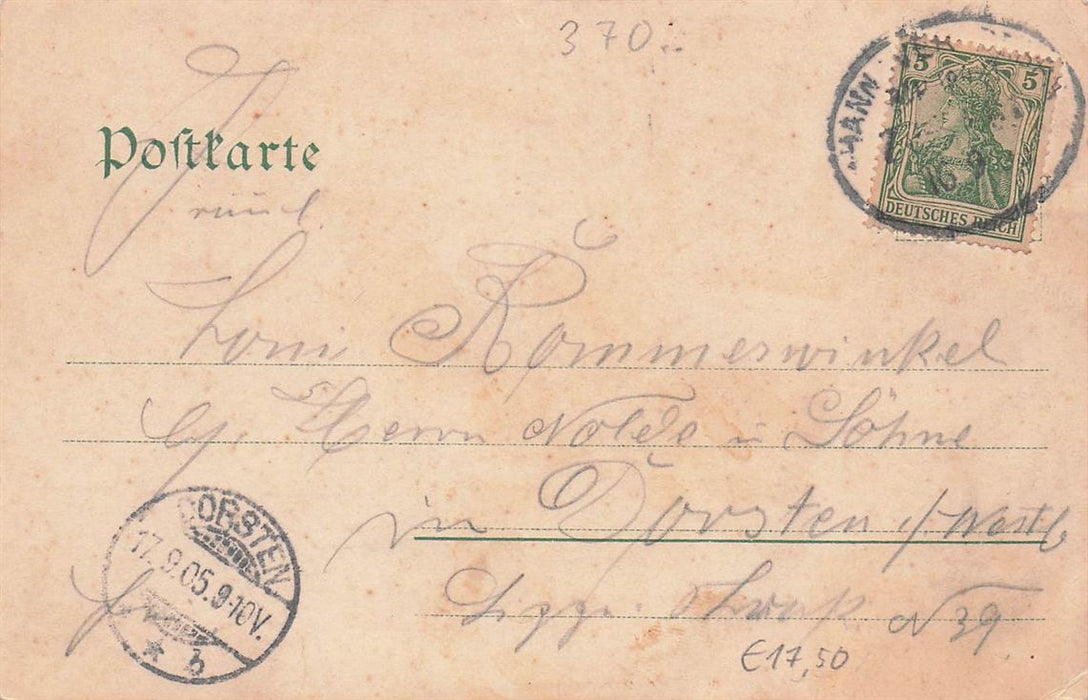 370.-
5 5
DEUTSCHES REICH
16 9
Postkarte
Toni Rommerswinkel
Herrn Nolde u Söhne
in Dorsten i/Westf
N 39
DORSTEN
17.9.05.9-10V.
* b
€17,50